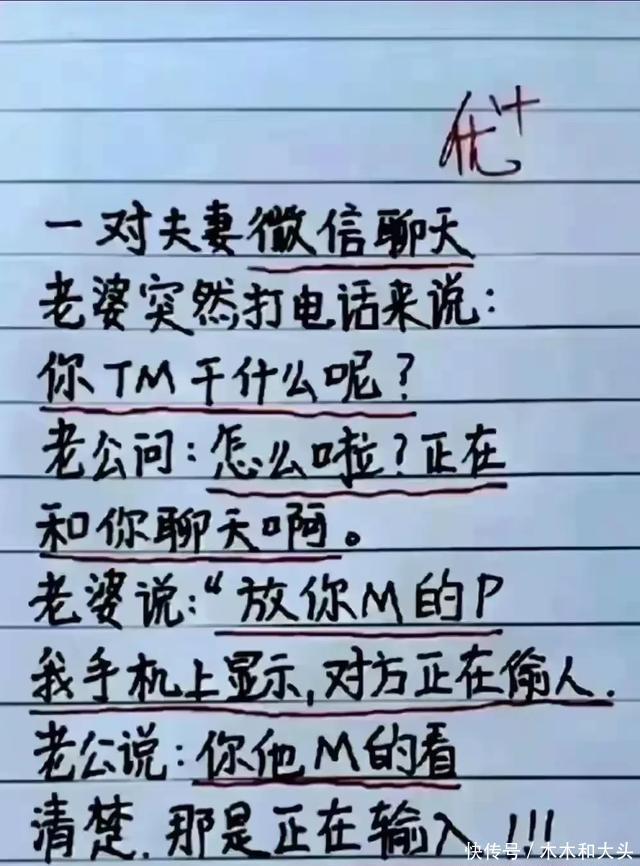 优+
一对夫妻微信聊天
老婆突然打电话来说:
你TM干什么呢?
老公问:怎么啦?正在
和你聊天啊。
老婆说:“放你M的P
我手机上显示,对方正在偷人.
老公说:你他M的看
清楚.那是正在输入!!!
快传号/木木和大头